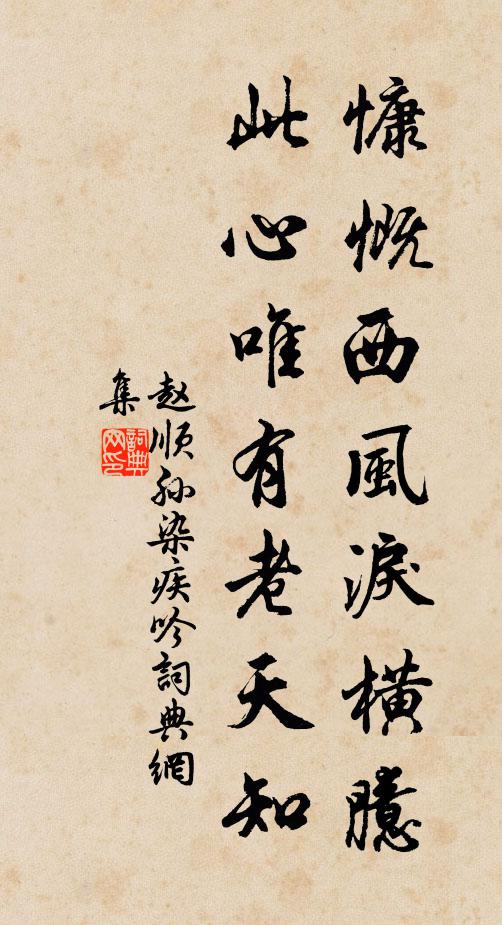 慷慨西風淚橫臆
此心唯有老天知
赵順孙染疾吟詞典網
集
詞典網印